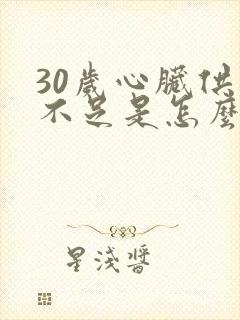 30歲心臟供
不足是怎麼
星淺醬